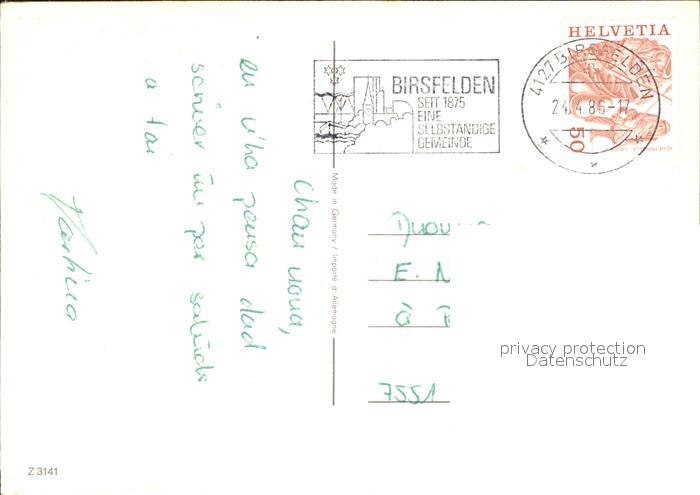 Chau nona,
eu n'ha pensà dad
scriver ün per salüds
a tai
HELVETIA
50
4127 BIRSFELDEN
24.4.86-17
BIRSFELDEN
SEIT 1875
EINE
SELBSTÄNDIGE
GEMEINDE
Made in Germany / Importé d'Allemagne
E. N
7551
privacy protection
Datenschutz
Z 3141